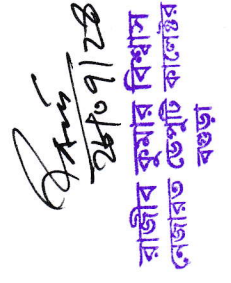 ২৫/০৭/২৪
রাজীব কুমার বিশ্বাস
নেজারত ডেপুটি কালেক্টর
বগুড়া